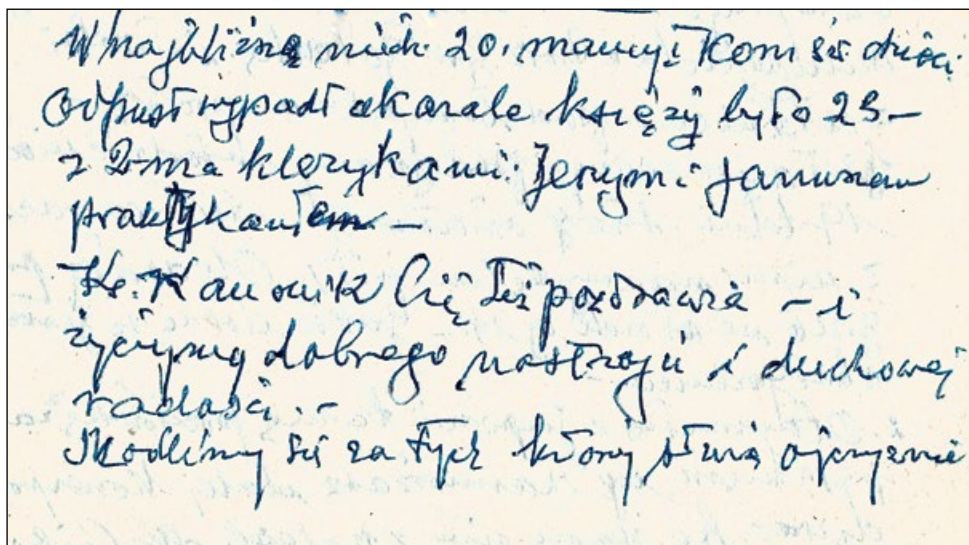 W najbliższą niedz. 20. mamy I Kom św. dzieci.
Odpust wypadł okazale księży było 23.–
z 2-ma klerykami: Jerzym i Januszem
praktykantem –
Ks. Kanonik Cię też pozdrawia – i
życzymy dobrego nastroju i duchowej
radości. –
Modlimy się za tych którzy służą ojczyźnie